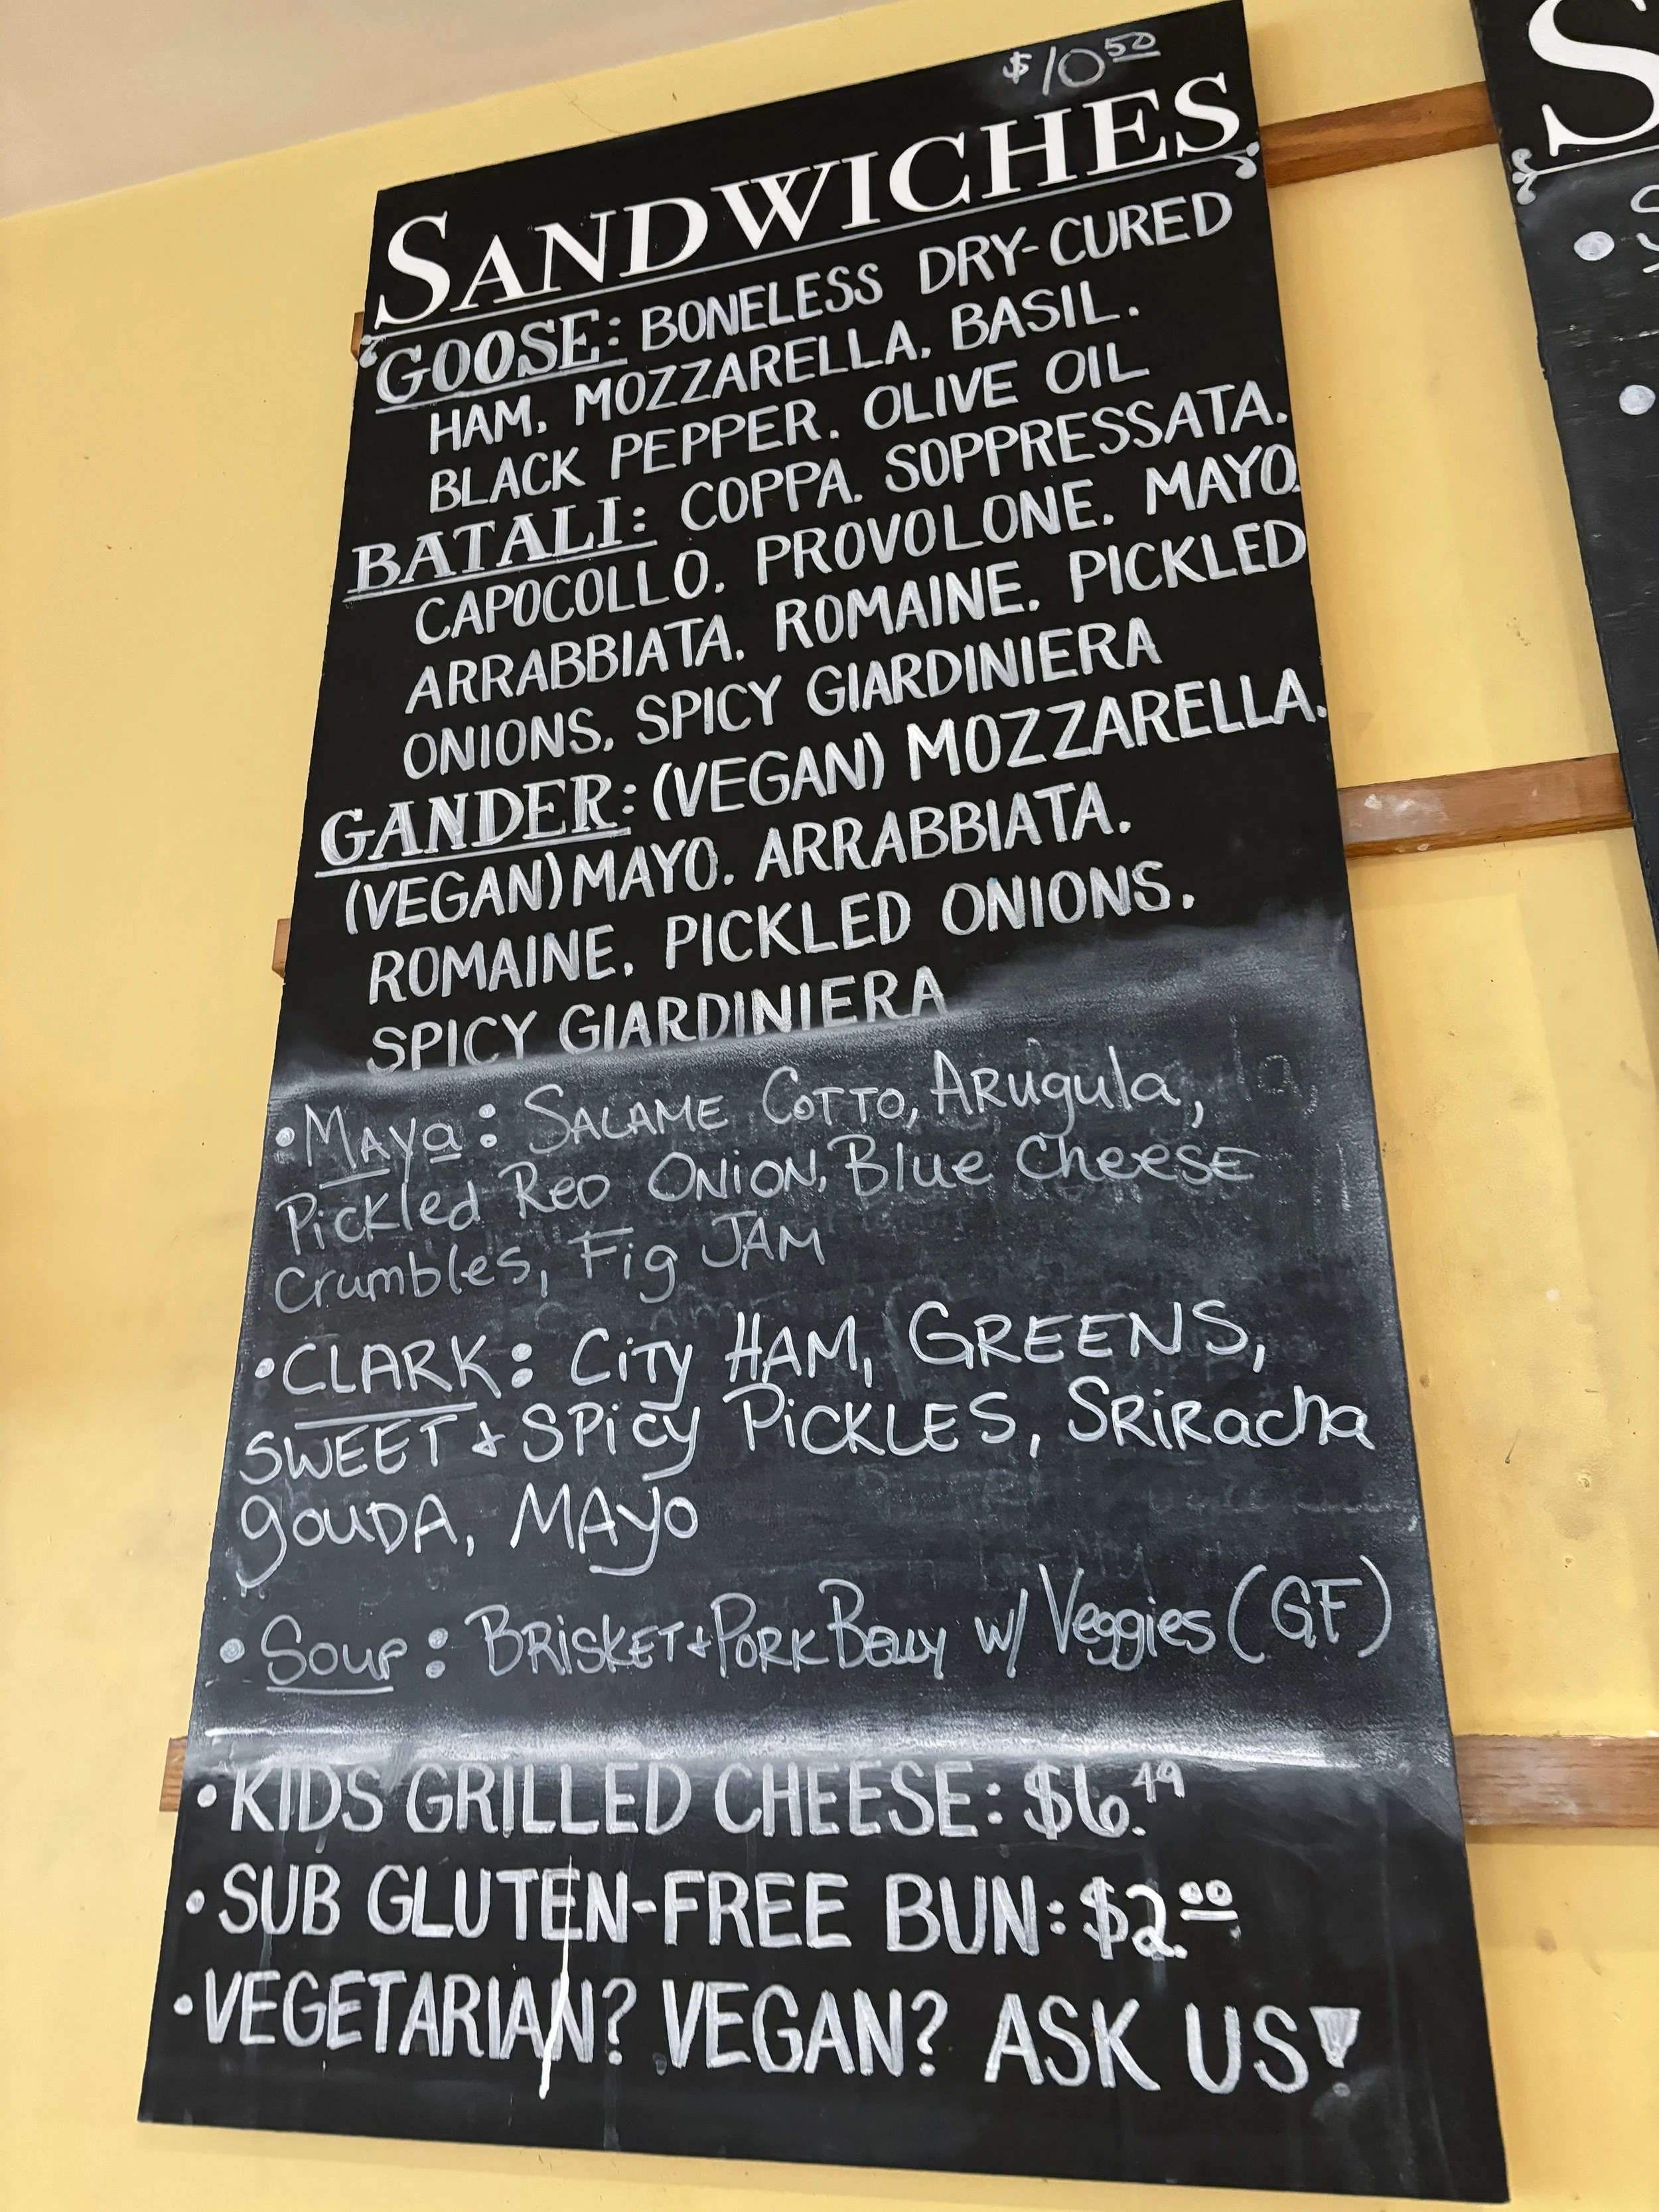 $10.50
SANDWICHES
GOOSE: BONELESS DRY-CURED
HAM. MOZZARELLA. BASIL.
BLACK PEPPER. OLIVE OIL
BATALI: COPPA. SOPPRESSATA.
CAPOCOLLO. PROVOLONE. MAYO.
ARRABBIATA. ROMAINE. PICKLED
ONIONS. SPICY GIARDINIERA
GANDER: (VEGAN) MOZZARELLA.
(VEGAN) MAYO. ARRABBIATA.
ROMAINE. PICKLED ONIONS.
SPICY GIARDINIERA
• Maya: SALAME COTTO, Arugula,
Pickled Red ONION, Blue Cheese
Crumbles, Fig JAM
• CLARK: City HAM, GREENS,
SWEET + SPicy PiCKLES, SRiRacha
gouDA, MAyo
• Soup: BRiSKET + PORK Belly w/ Veggies (GF)
• KIDS GRILLED CHEESE: $6.49
• SUB GLUTEN-FREE BUN: $2.00
• VEGETARIAN? VEGAN? ASK US!
S